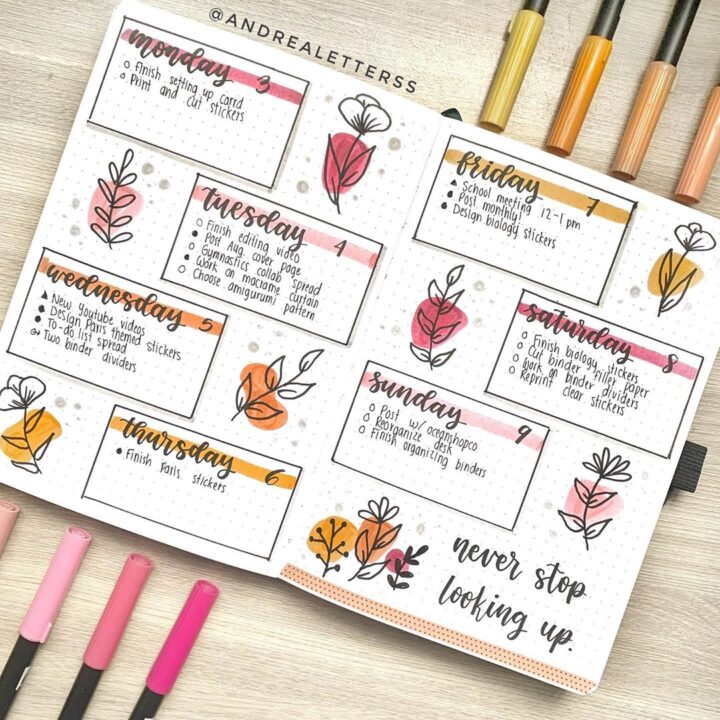 @ANDREALETTERSS
monday 3
Finish setting up card
Print and cut stickers
tuesday 4
Finish editing video
Post Aug. cover page
Gymnastics collab spread
Work on macrame curtain
Choose amigurumi pattern
wednesday 5
New Youtube videos
Design Paris themed stickers
To-do list spread
Two binder dividers
thursday 6
Finish Paris stickers
friday 7
School meeting 12-1 pm
Post monthly!
Design biology stickers
saturday 8
Finish biology stickers
Cut binder filler paper
Work on binder dividers
Reprint clear stickers
sunday 9
Post w/ oceanshopco
Reorganize desk
Finish organizing binders
never stop
looking up.